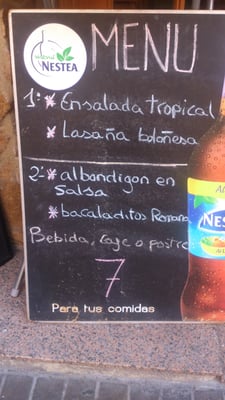 MENU
NESTEA
1º * Ensalada tropical
* Lasaña boloñesa
2º * albondigon en
salsa
* bacaladitos Romana
Bebida, cafe o postre
7
Para tus comidas